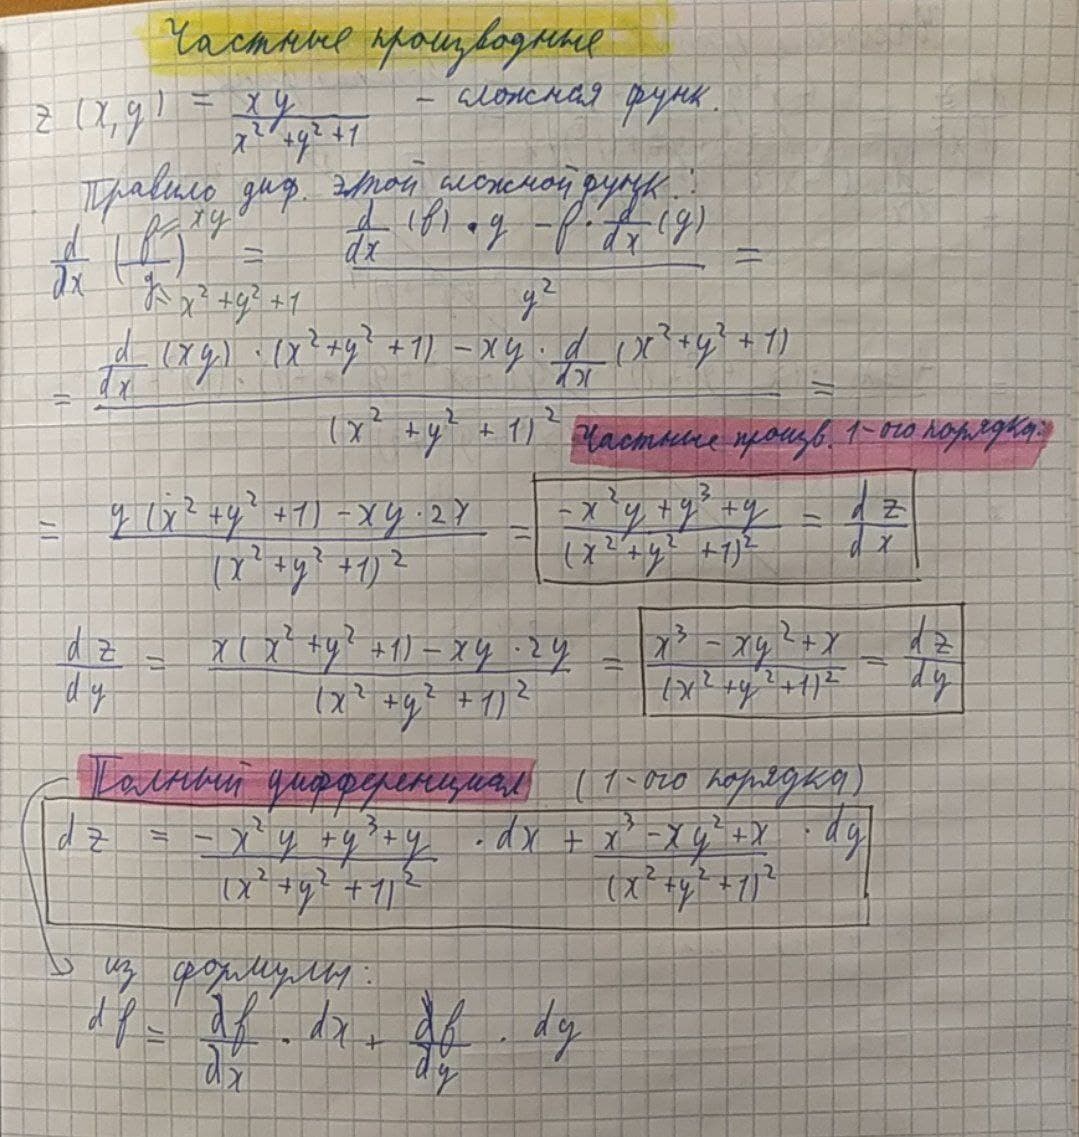 Частные производные
z (x,y) = xy / (x² + y² + 1) – сложная функ.
Правило диф. этой сложной функ.:
d/dx (f ← xy / g ← x² + y² + 1) = (d/dx (f) · g – f · d/dx (g)) / g² =
= (d/dx (xy) · (x² + y² + 1) – xy · d/dx (x² + y² + 1)) / (x² + y² + 1)² =
Частные произв. 1-ого порядка:
= (y (x² + y² + 1) – xy · 2x) / (x² + y² + 1)² = (-x²y + y³ + y) / (x² + y² + 1)² = dz/dx
dz/dy = (x (x² + y² + 1) – xy · 2y) / (x² + y² + 1)² = (x³ – xy² + x) / (x² + y² + 1)² = dz/dy
Полный дифференциал (1-ого порядка)
dz = (-x²y + y³ + y) / (x² + y² + 1)² · dx + (x³ – xy² + x) / (x² + y² + 1)² · dy
из формулы:
df = df/dx · dx + df/dy · dy